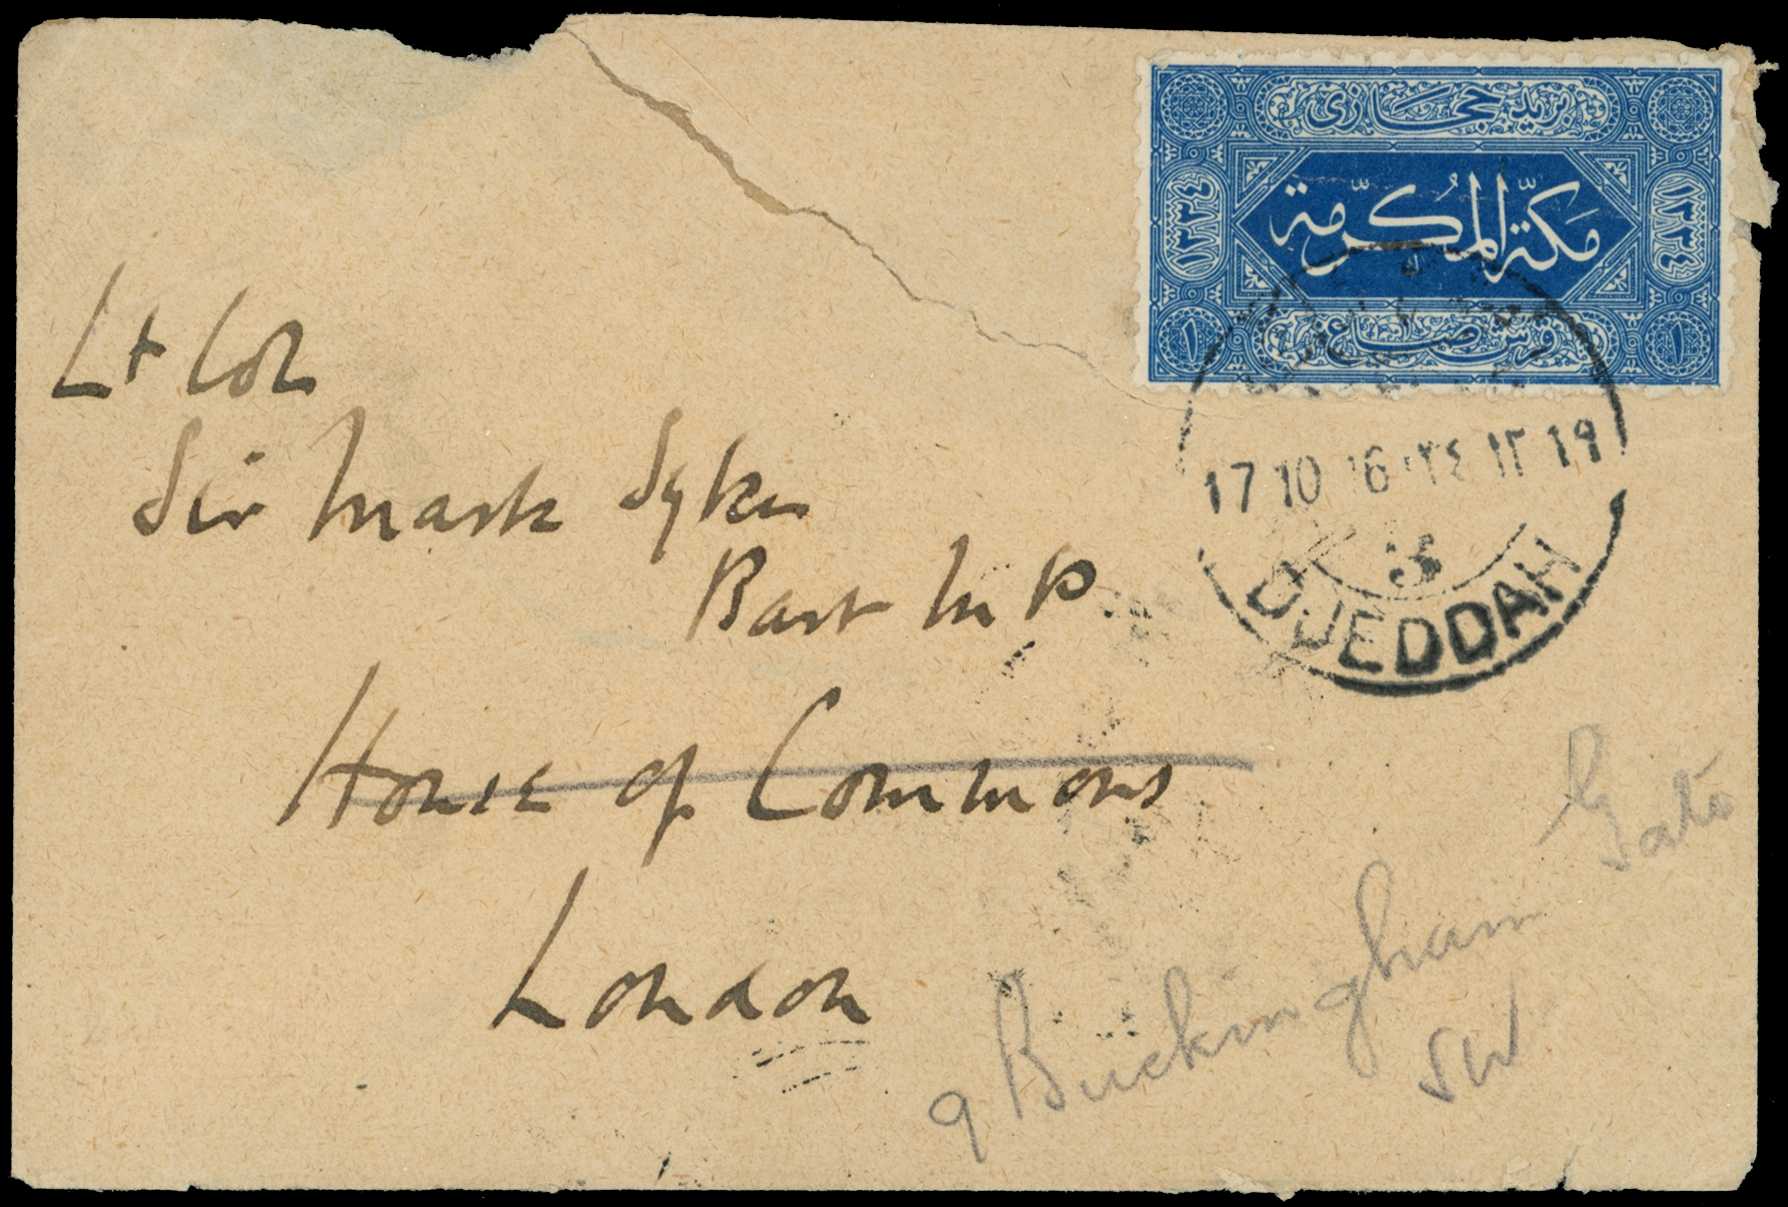 بريد حجازى
١٣٣٤ ١٣٣٤
مكّة المكرّمة
١ قرش صاغ ١
17 10 16 ٣٤ ١٢ ١٩
3
DJEDDAH
Lt Col
Sir Mark Sykes
Bart M P
House of Commons
London
9 Buckingham Gate
SW